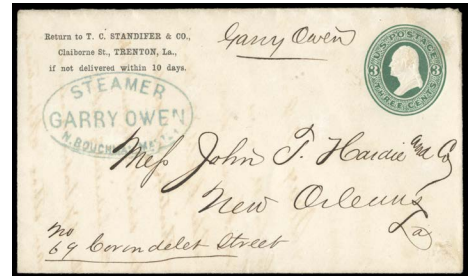 Return to T. C. STANDIFER & CO.,
Claiborne St., TRENTON, La.,
if not delivered within 10 days.
Garry Owen
U.S. POSTAGE
3 3
THREE CENTS
STEAMER
GARRY OWEN
Mess John T. Hardie and Co
New Orleans
La
No
69 Carondelet Street